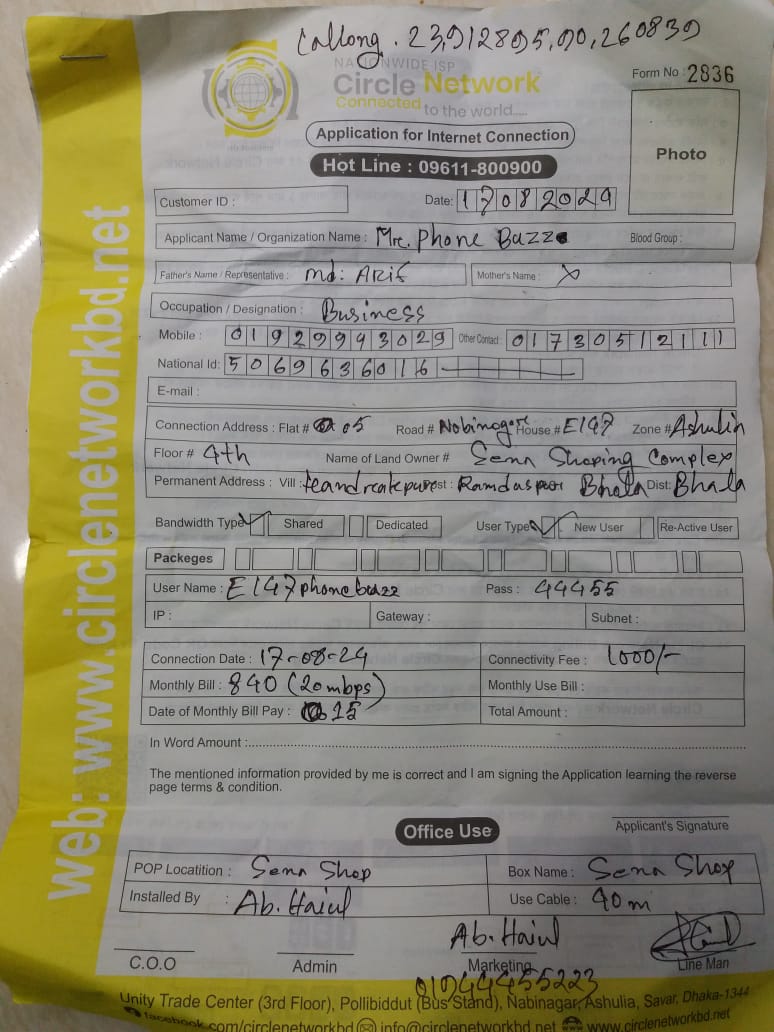 Latlong. 23,912895,90,260839
NATIONWIDE ISP
Circle Network
Connected to the world.....
Form No : 2836
Application for Internet Connection
Hot Line : 09611-800900
Photo
Customer ID :
Date: 17082024
Applicant Name / Organization Name : Mre. Phone Buzz
Blood Group :
Father's Name / Representative : md: ARif
Mother's Name : X
Occupation / Designation : Business
Mobile : 01929943029 Other Contact : 01730512111
National Id: 5069636016
E-mail :
Connection Address : Flat # 05 Road # Nobinagor House # E147 Zone # Ashulia
Floor # 4th Name of Land Owner # Sena Shoping Complex
Permanent Address : Vill : Post : Ramdaspur Bhola Dist: Bhala
Bandwidth Type ✓ Shared Dedicated User Type ✓ New User Re-Active User
Packeges
User Name : E147phonebuzz Pass : 44455
IP : Gateway : Subnet :
Connection Date : 17-08-24 Connectivity Fee : 1000/-
Monthly Bill : 840 (20mbps) Monthly Use Bill :
Date of Monthly Bill Pay : 15 Total Amount :
In Word Amount :
The mentioned information provided by me is correct and I am signing the Application learning the reverse
page terms & condition.
Applicant's Signature
Office Use
POP Locatition : Sena Shop Box Name : Sena Shop
Installed By : Ab. Haiul Use Cable : 40 m
Ab. Haiul
C.O.O Admin Marketing Line Man
01944455223
Unity Trade Center (3rd Floor), Pollibiddut (Bus Stand), Nabinagar, Ashulia, Savar, Dhaka-1344
facebook.com/circlenetworkbd info@circlenetworkbd.net www.circlenetworkbd.net
web: www.circlenetworkbd.net